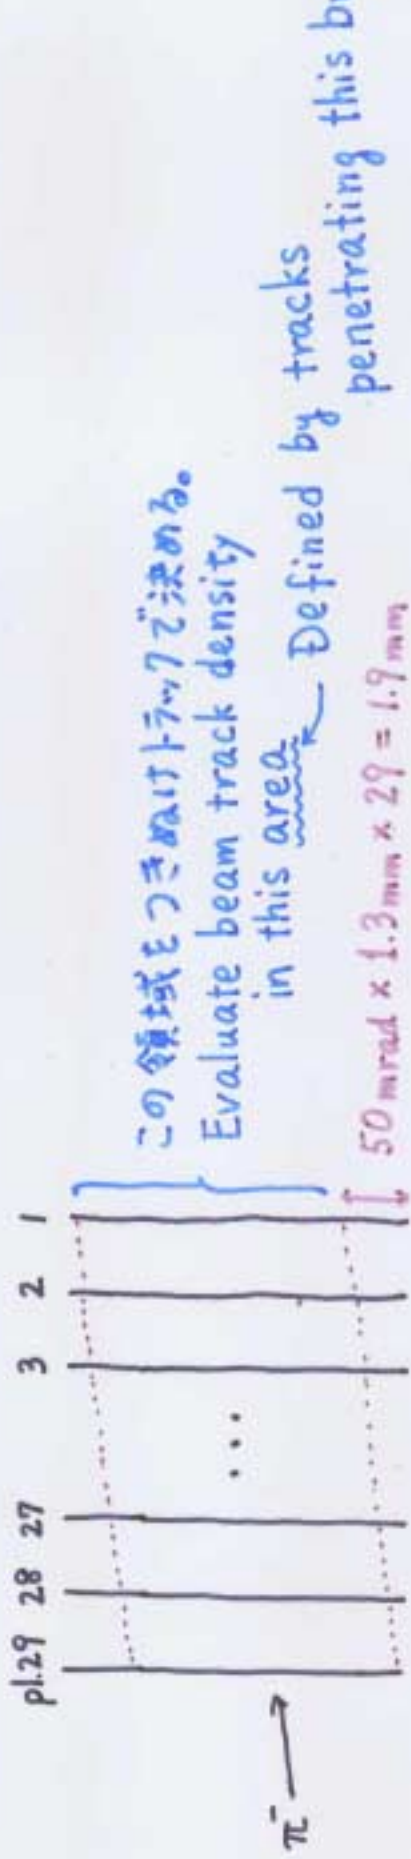 pl.29 28 27 ... 3 2 1
π⁻
この領域をつきぬけトラックで決める。
Evaluate beam track density
in this area
Defined by tracks
penetrating this
50 mrad × 1.3 mm × 29 = 1.9 mm